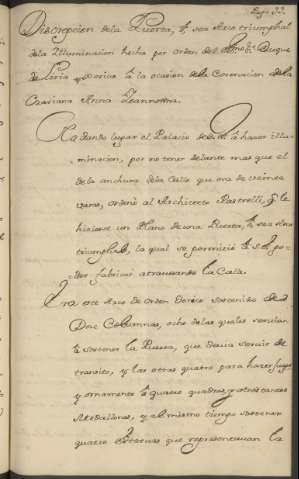 Discrepcion dela Puerta, ò sea Arco triumphal
dela Illuminacion hecha por orden del Ex.mo S.r Duque
de Liria y Xerica à la ocasion dela Coronacion dela
Czariana Anna Ioannowna.
No dando lugar el Palacio de S.E. à hacer illu-
minacion, por no tener delante mas que el
dela anchura dela Calle que era de treinta
varas, ordenò al Architecto Rastrelli, q. le
hiciese un Plano de una Puerta, ò sea Arco
triumphal, la qual se permitiò à S.E. po-
der fabricar atravesando la Calle.
Era este Arco de orden Dorico sostenido de
Doce Columnas, ocho delas quales servian
à sostener la Puerta, que devia servir de
transito, y las otras quatro para hacer juego
y ornamento à quatro quadros, y otros tantos
Medallones, y al mismo tiempo sostener
quatro Estatuas que representavan la